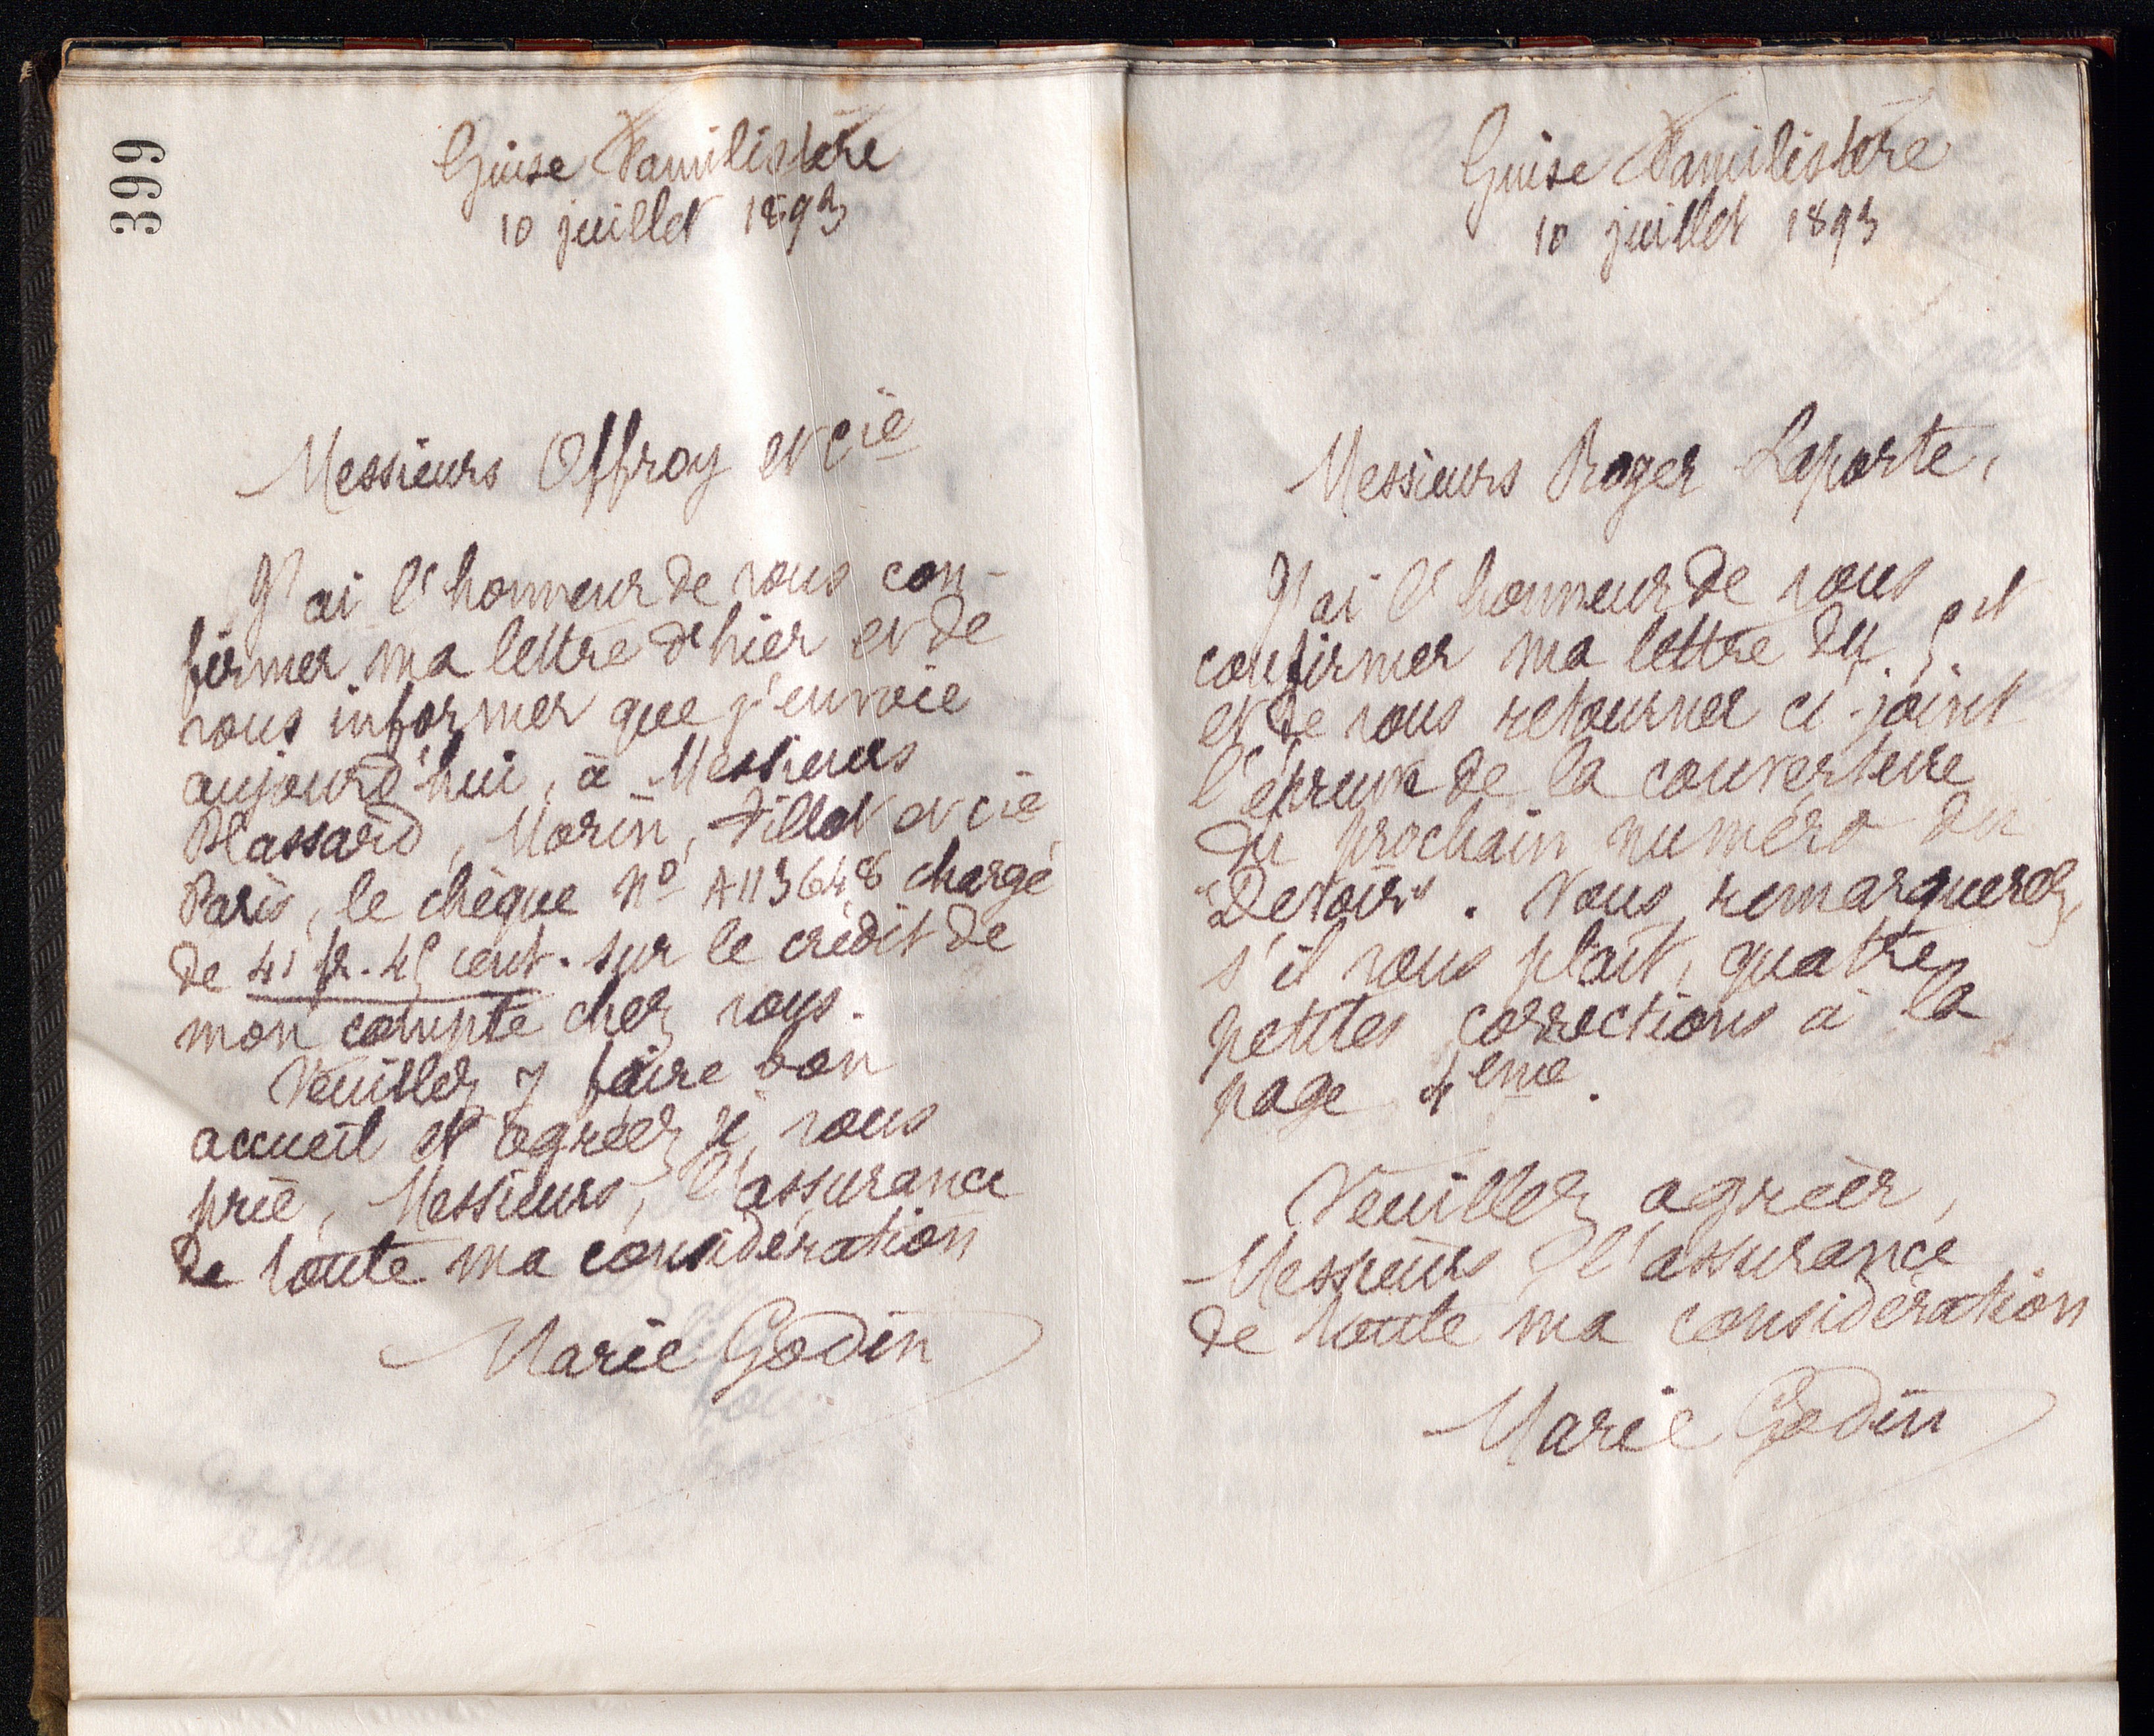 399
Guise Familistère
10 juillet 1893
Messieurs Offroy et Cie
J'ai l'honneur de vous con-
firmer ma lettre d'hier et de
vous informer que j'envoie
aujourd'hui, à Messieurs
Plassard, Morin, Fillot et Cie
Paris, le chèque No A113648 chargé
de 41 fr. 45 cent. sur le crédit de
mon compte chez vous.
Veuillez y faire bon
accueil et agréer, je vous
prie, Messieurs, l'assurance
de toute ma considération
Marie Godin
Guise Familistère
10 juillet 1893
Messieurs Roger Laporte,
J'ai l'honneur de vous
confirmer ma lettre du 5 ct
et de vous retourner ci-joint
l'épreuve de la couverture
du prochain numéro du
"Devoir". Vous remarquerez,
s'il vous plaît, quatre
petites corrections à la
page 4ème.
Veuillez agréer,
Messieurs, l'assurance
de toute ma considération
Marie Godin